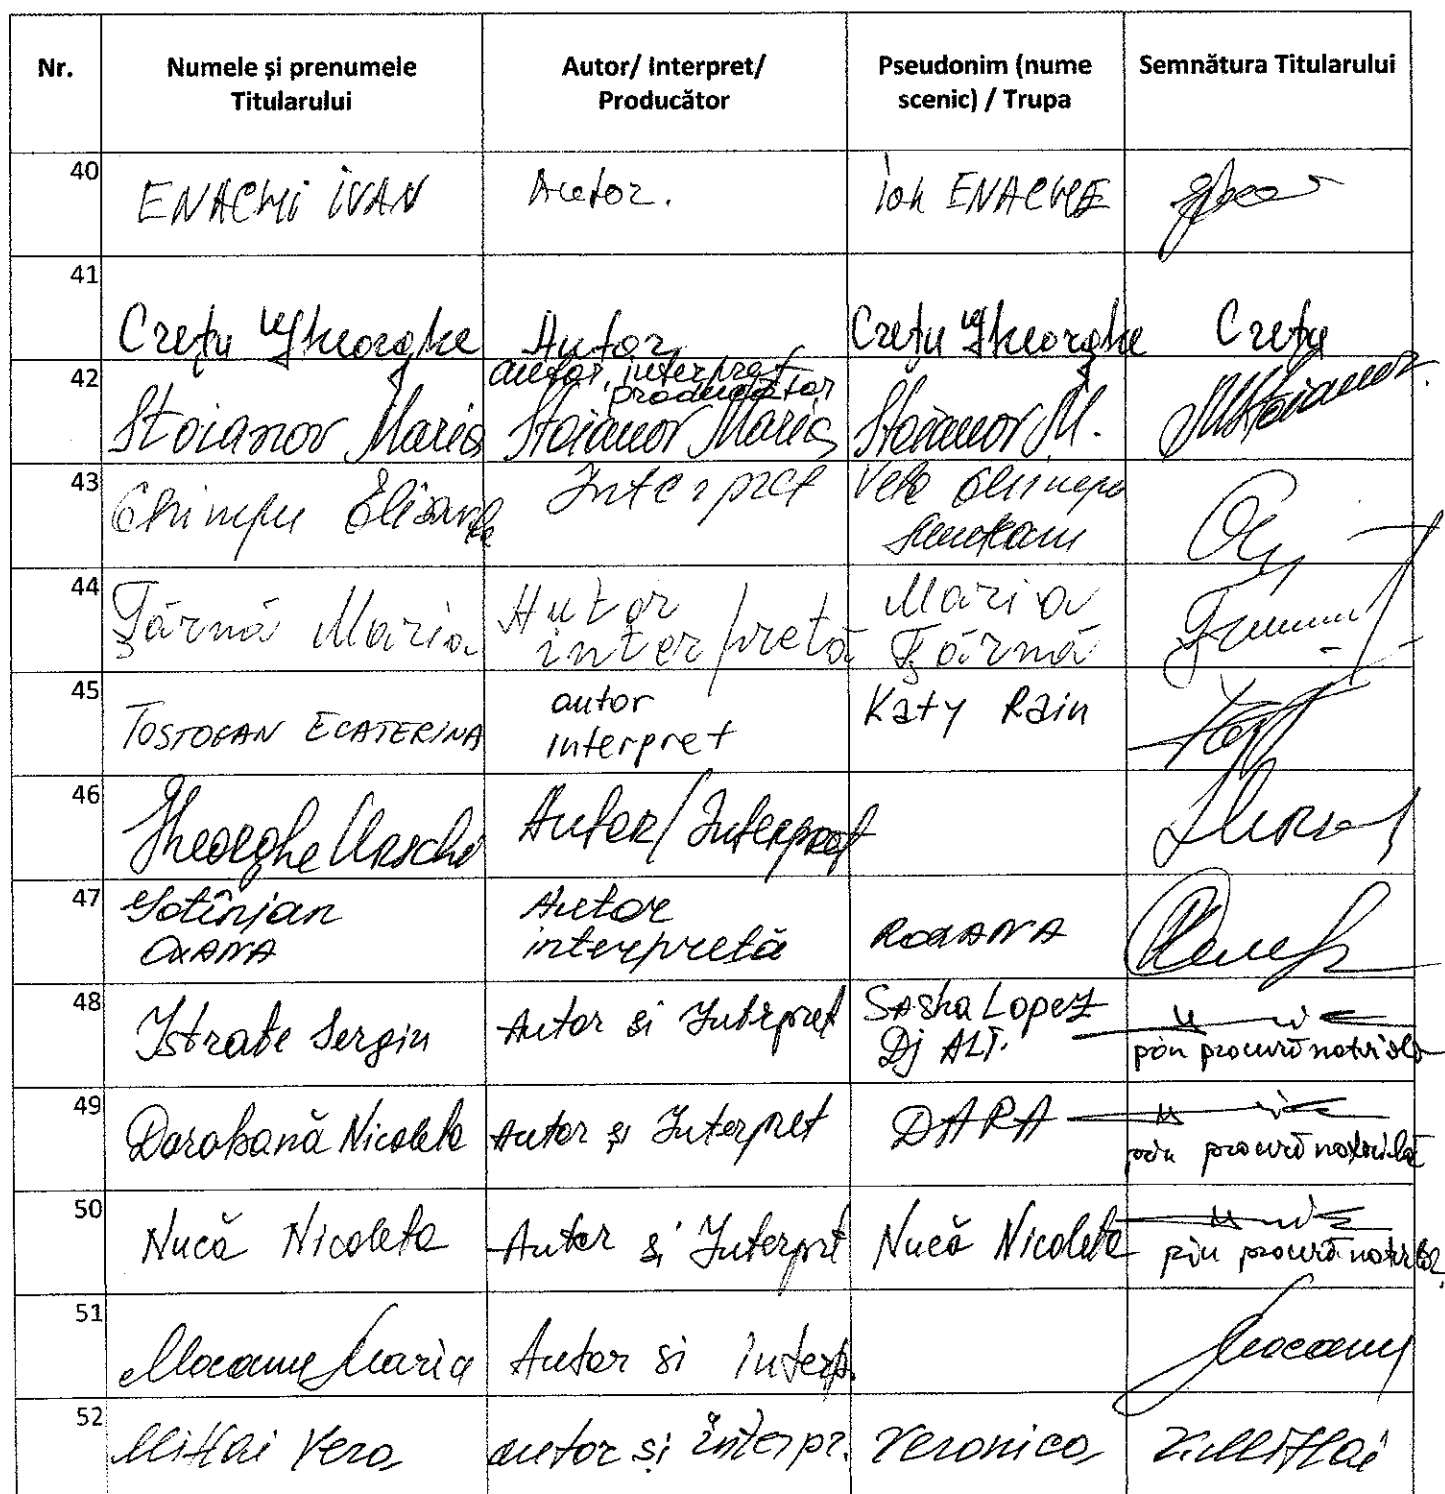 Nr. Numele și prenumele Titularului Autor/ Interpret/ Producător Pseudonim (nume scenic) / Trupa Semnătura Titularului
40 ENACHI IVAN Autor. Ion ENACHE
41 Crețu Gheorghe Autor Crețu Gheorghe Crețu
42 Stoianov Maria autor, interpret producător Stoianov Maria Stoianov M. MStoianov
43 Chimpu Interpret
44 Țărnă Maria Autor interpretă Maria Țărnă
45 TOSTOGAN ECATERINA autor interpret Katy Rain
46 Gheorghe Urschi Autor/Interpret
47 Gotînjan OXANA Autor interpretă ROXANA
48 Istrate Sergiu Autor si Interpret Sasha Lopez Dj ALT. prin procură notarială
49 Darabană Nicoleta Autor și Interpret DARA prin procură notarială
50 Nucă Nicoleta Autor și Interpret Nucă Nicoleta prin procură notarială
51 Mocanu Maria Autor si interp. Mocanu
52 Mihai Vera autor și interpr. Veronica V.Mihai